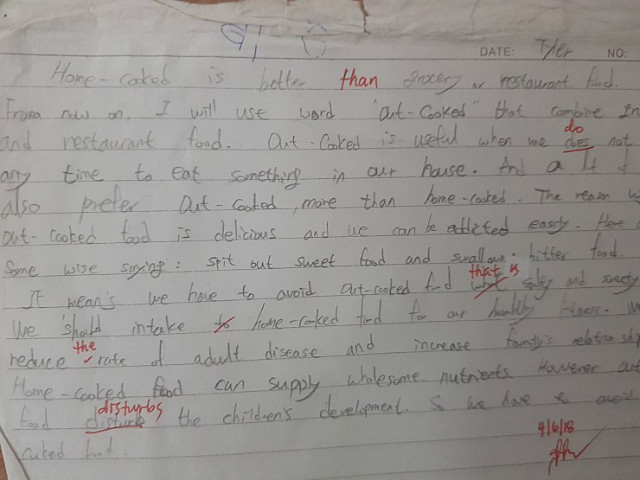 DATE: Tyler NO:
Home-cooked is better than grocery or restaurant food.
From now on, I will use word "out-cooked" that combine
and restaurant food. Out-cooked is useful when we do does not
any time to eat something in our house. And a lt
also prefer out-cooked, more than home-cooked. The reason
out-cooked food is delicious and we can be addicted easily. Here
Some wise saying: spit out sweet food and swallow bitter food.
It mean's we have to avoid out-cooked food that is salty and sweety
We should intake to home-cooked food for our healthy fitness.
reduce the rate of adult disease and increase family's relationship
Home-cooked food can supply wholesome nutrients. However out
food disturbs disturb the children's development. So we have to avoid
cooked food.
4/6/18